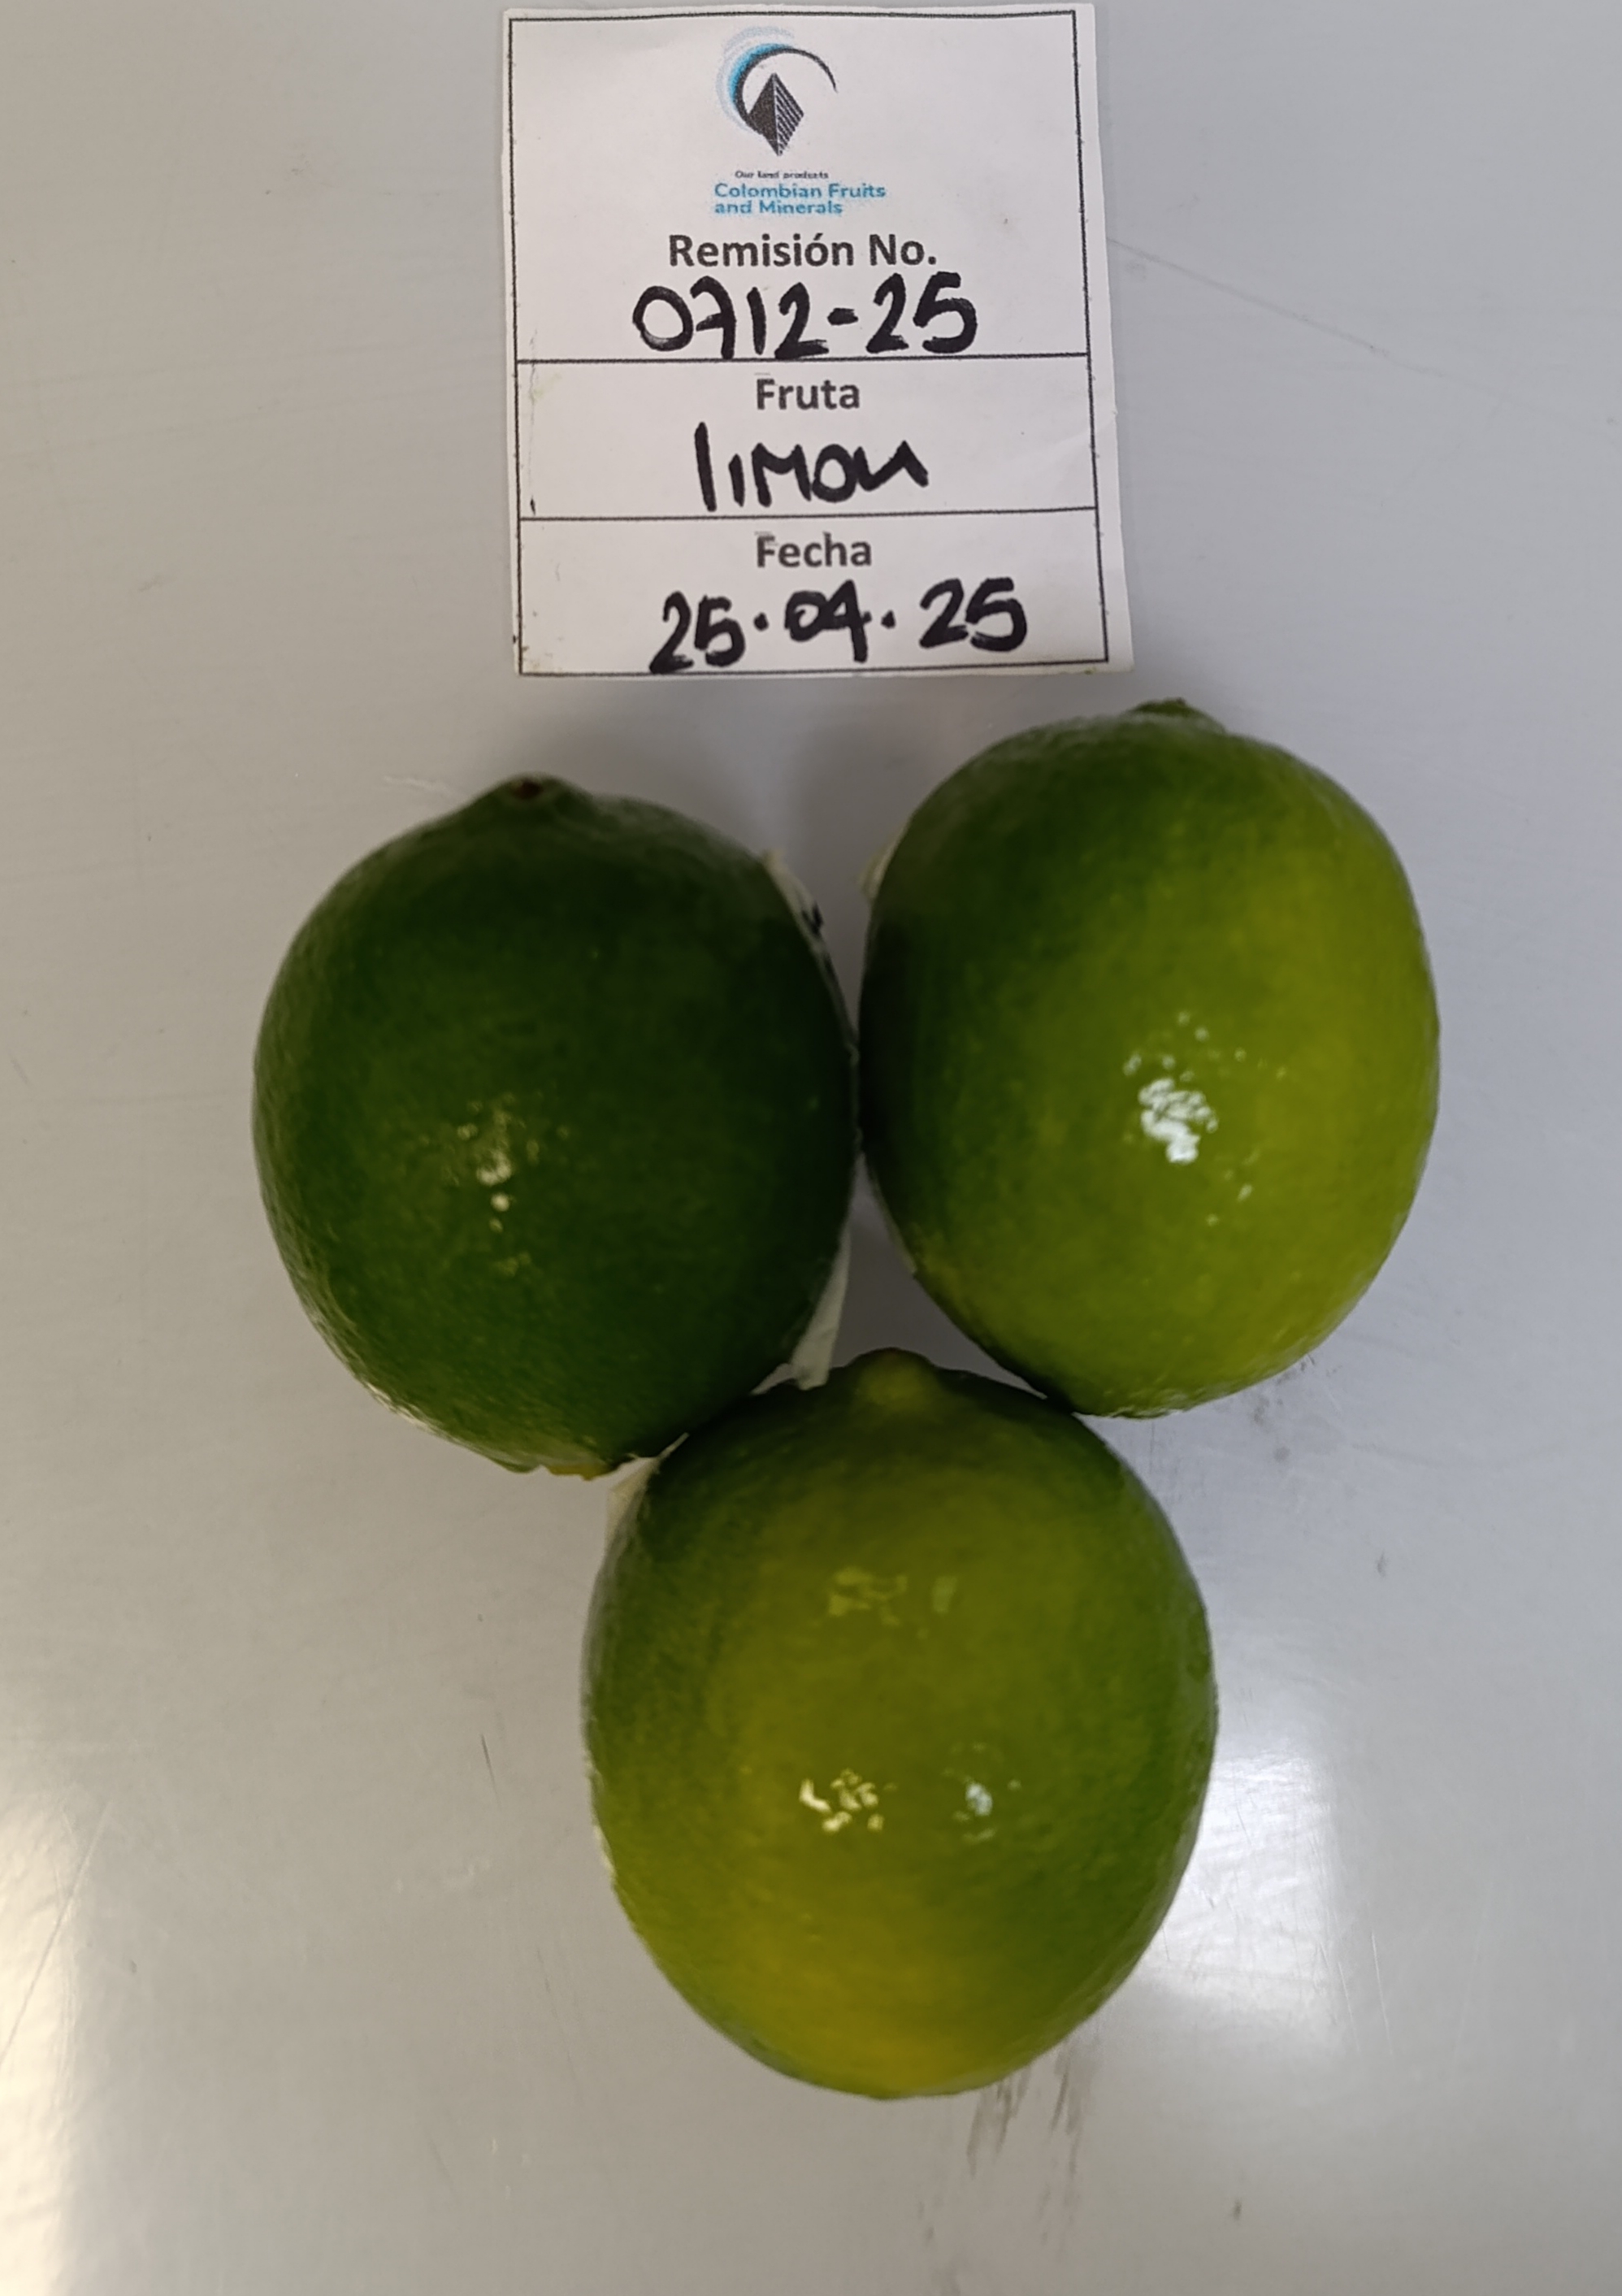 Our land products
Colombian Fruits
and Minerals
Remisión No.
0712-25
Fruta
limon
Fecha
25.04.25